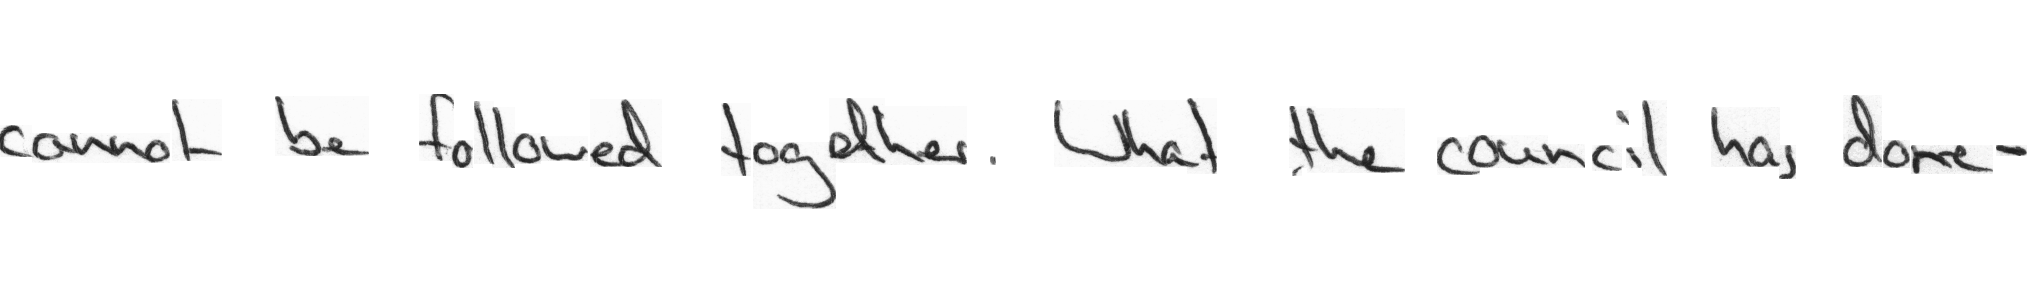 cannot be followed together. What the council has done-